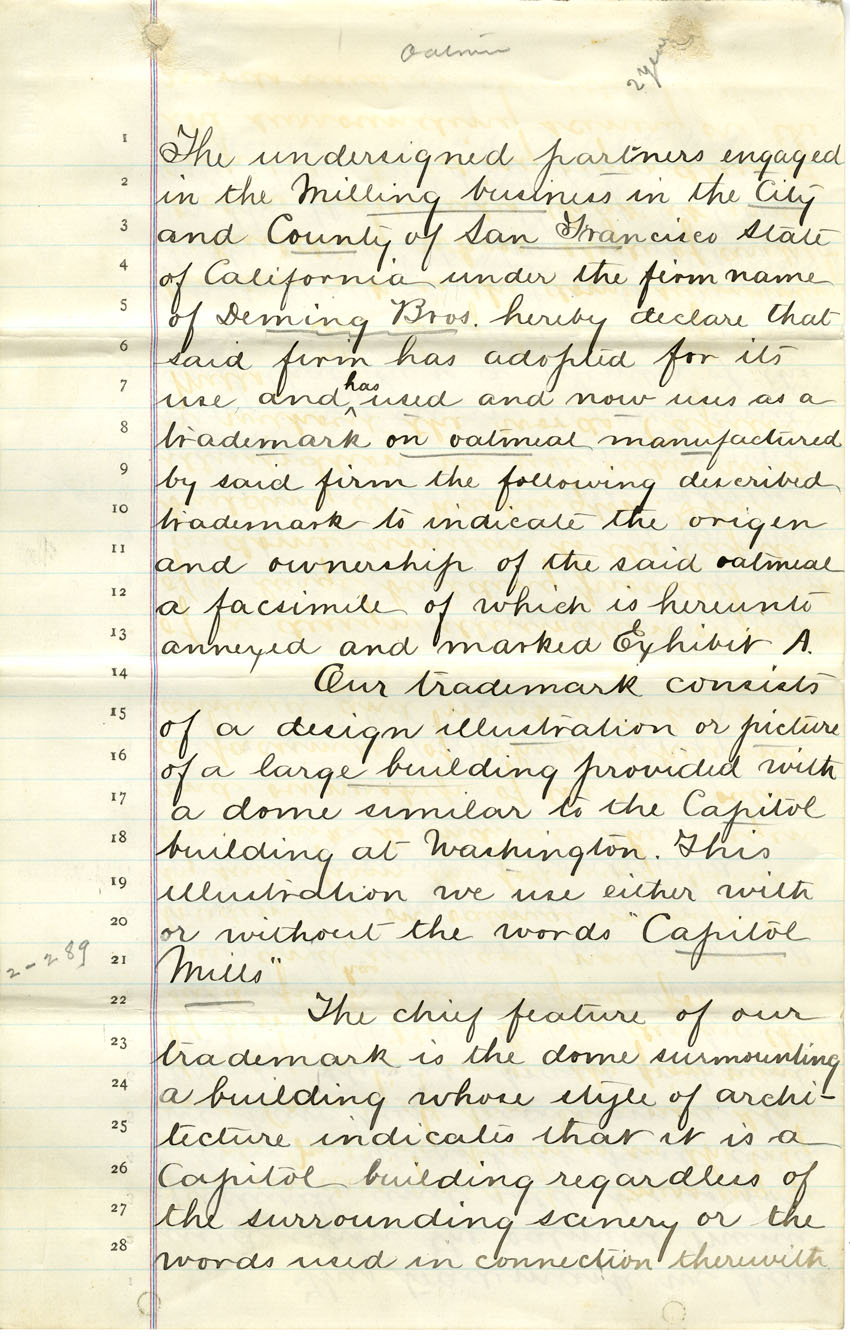 2 years
1 The undersigned partners engaged
2 in the Milling business in the City
3 and County of San Francisco State
4 of California under the firm name
5 of Deming Bros. hereby declare that
6 said firm has adopted for its
7 use and has used and now uses as a
8 trademark on oatmeal manufactured
9 by said firm the following described
10 trademark to indicate the origen
11 and ownership of the said oatmeal
12 a facsimile of which is hereunto
13 annexed and marked Exhibit A.
14 Our trademark consists
15 of a design illustration or picture
16 of a large building provided with
17 a dome similar to the Capitol
18 building at Washington. This
19 illustration we use either with
20 or without the words "Capitol
2-289
21 Mills"
22 The chief feature of our
23 trademark is the dome surmounting
24 a building whose style of archi-
25 tecture indicates that it is a
26 Capitol building regardless of
27 the surrounding scenery or the
28 words used in connection therewith